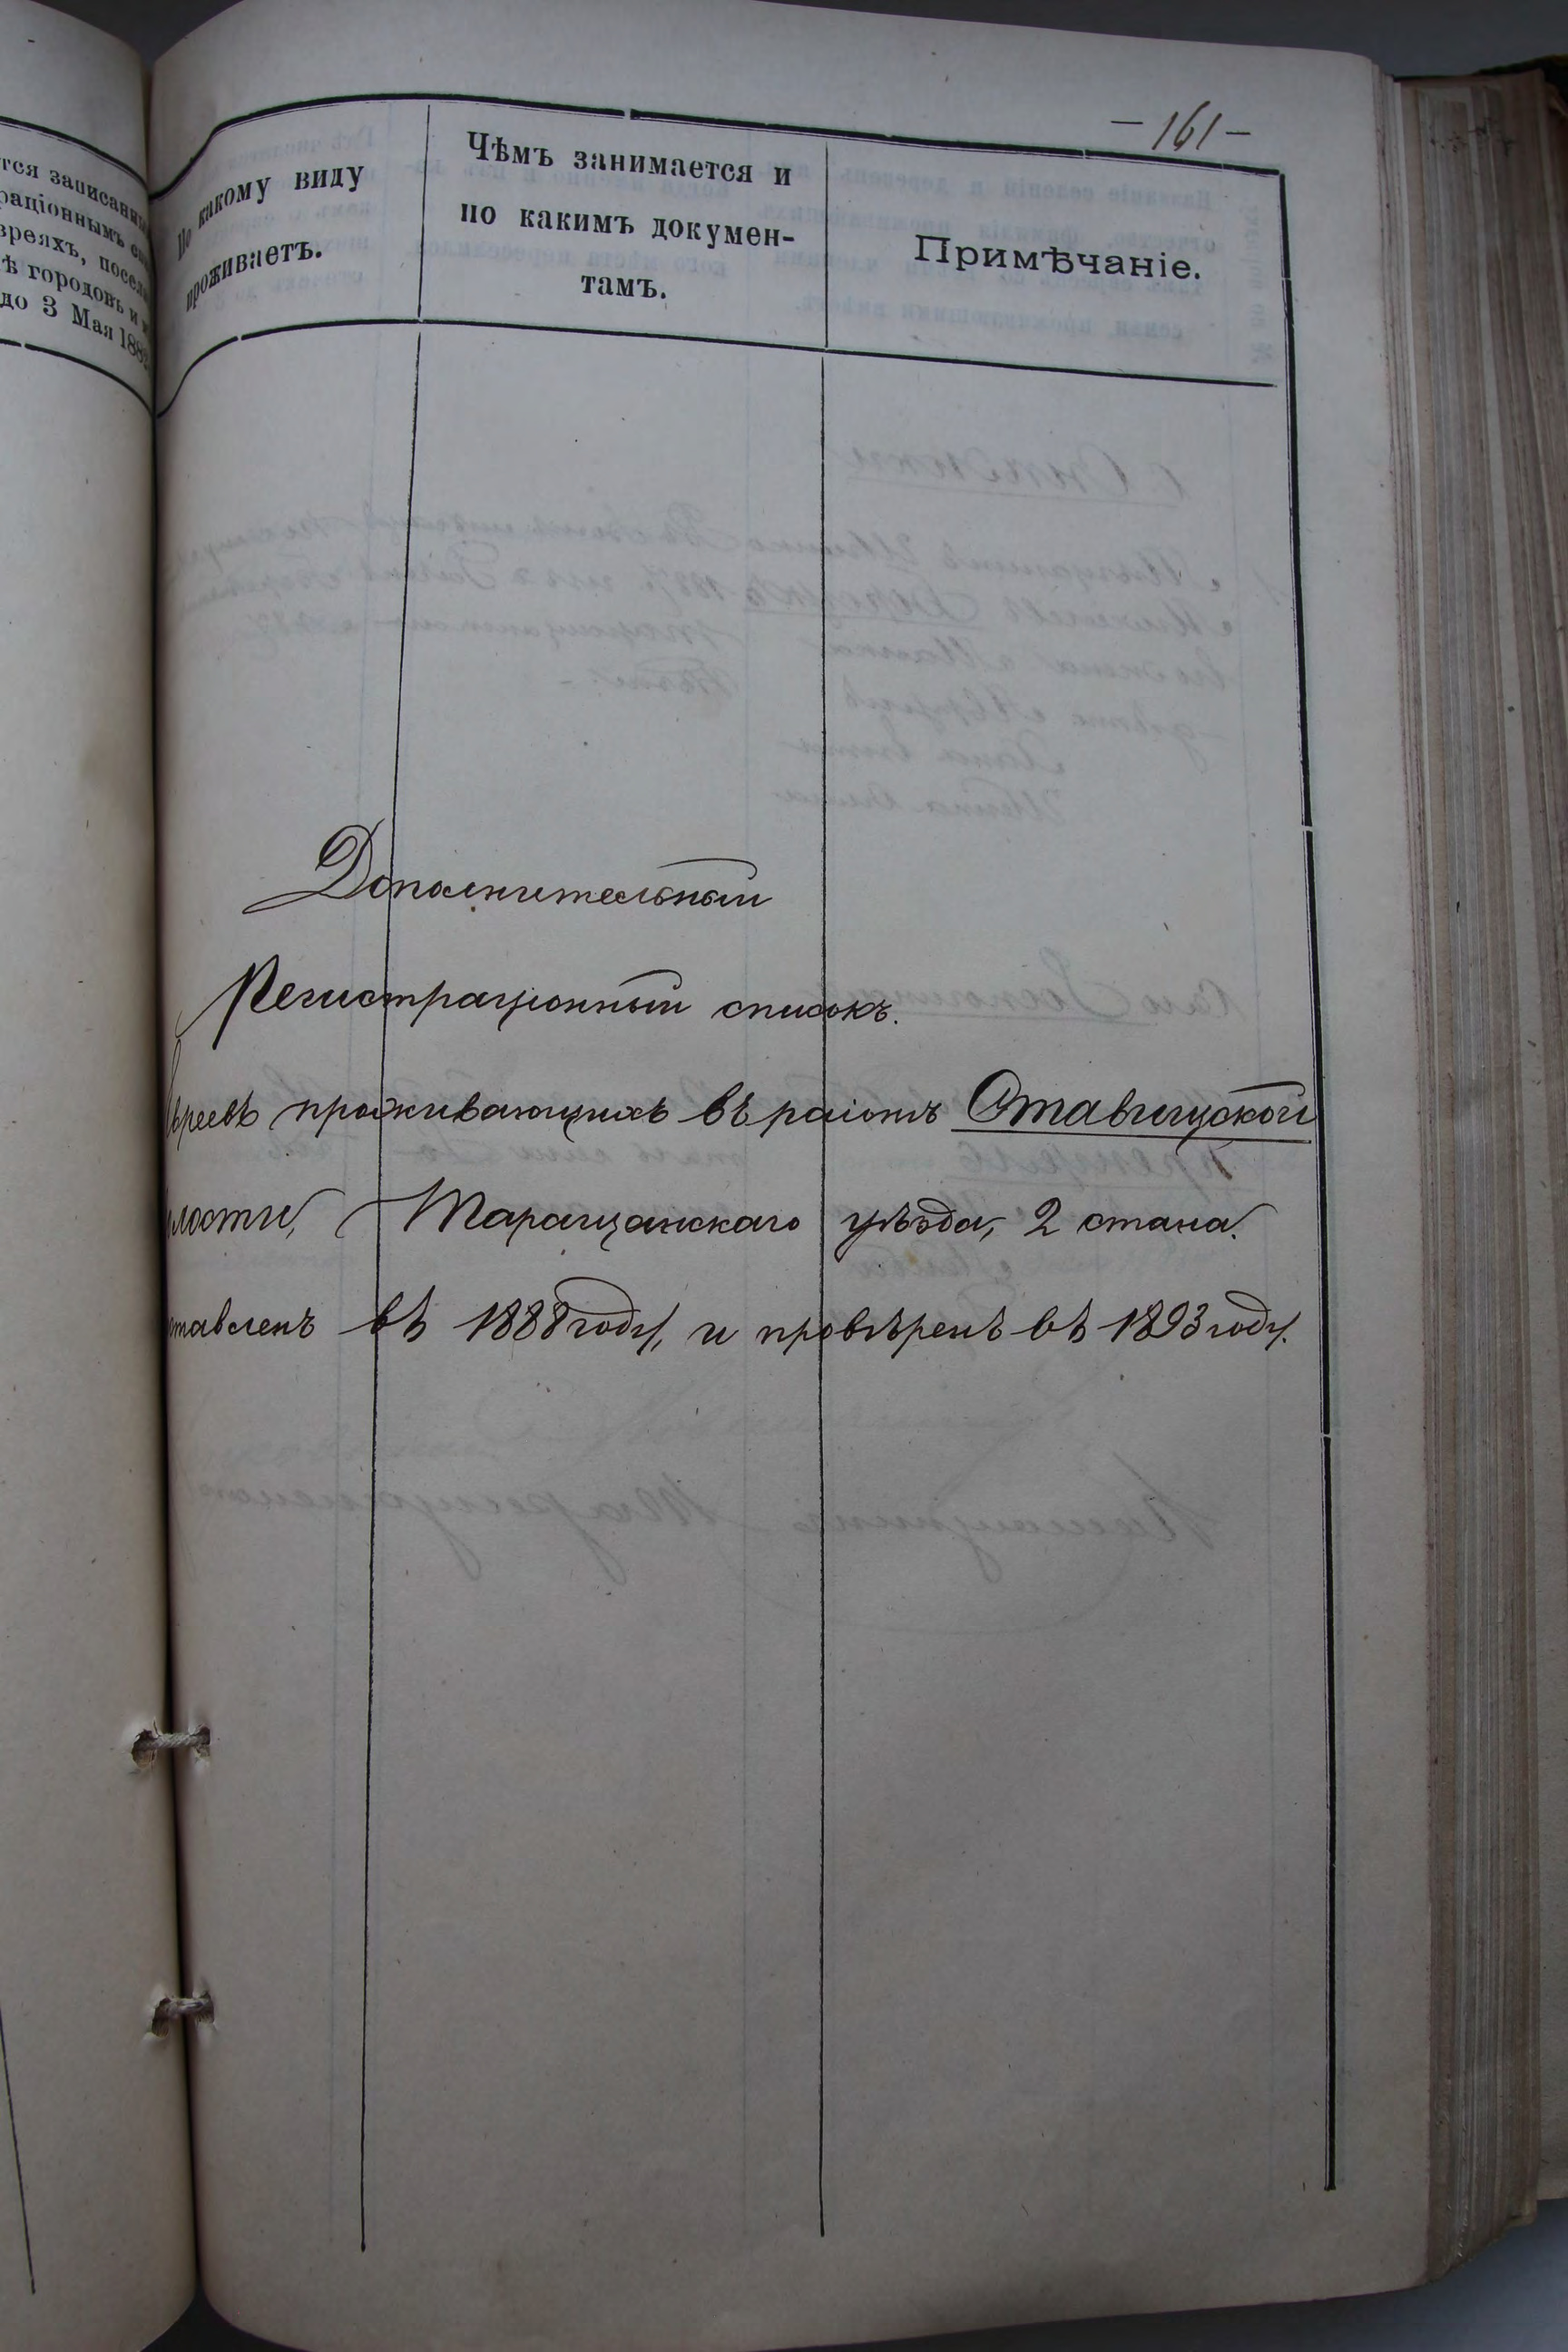 тся записанны
раціоннымъ сп
вреяхъ, посел
ѣ городовъ и м
до 3 Мая 1882
— 161 —
По какому виду
проживаетъ.
Чѣмъ занимается и
по какимъ докумен-
тамъ.
Примѣчаніе.
Дополнительный
Регистраціонный списокъ.
Евреевъ проживающихъ въ раіонѣ Ставищской
лости, Таращанскаго уѣзда, 2 стана.
ставленъ въ 1888 году, и провѣренъ въ 1893 году.